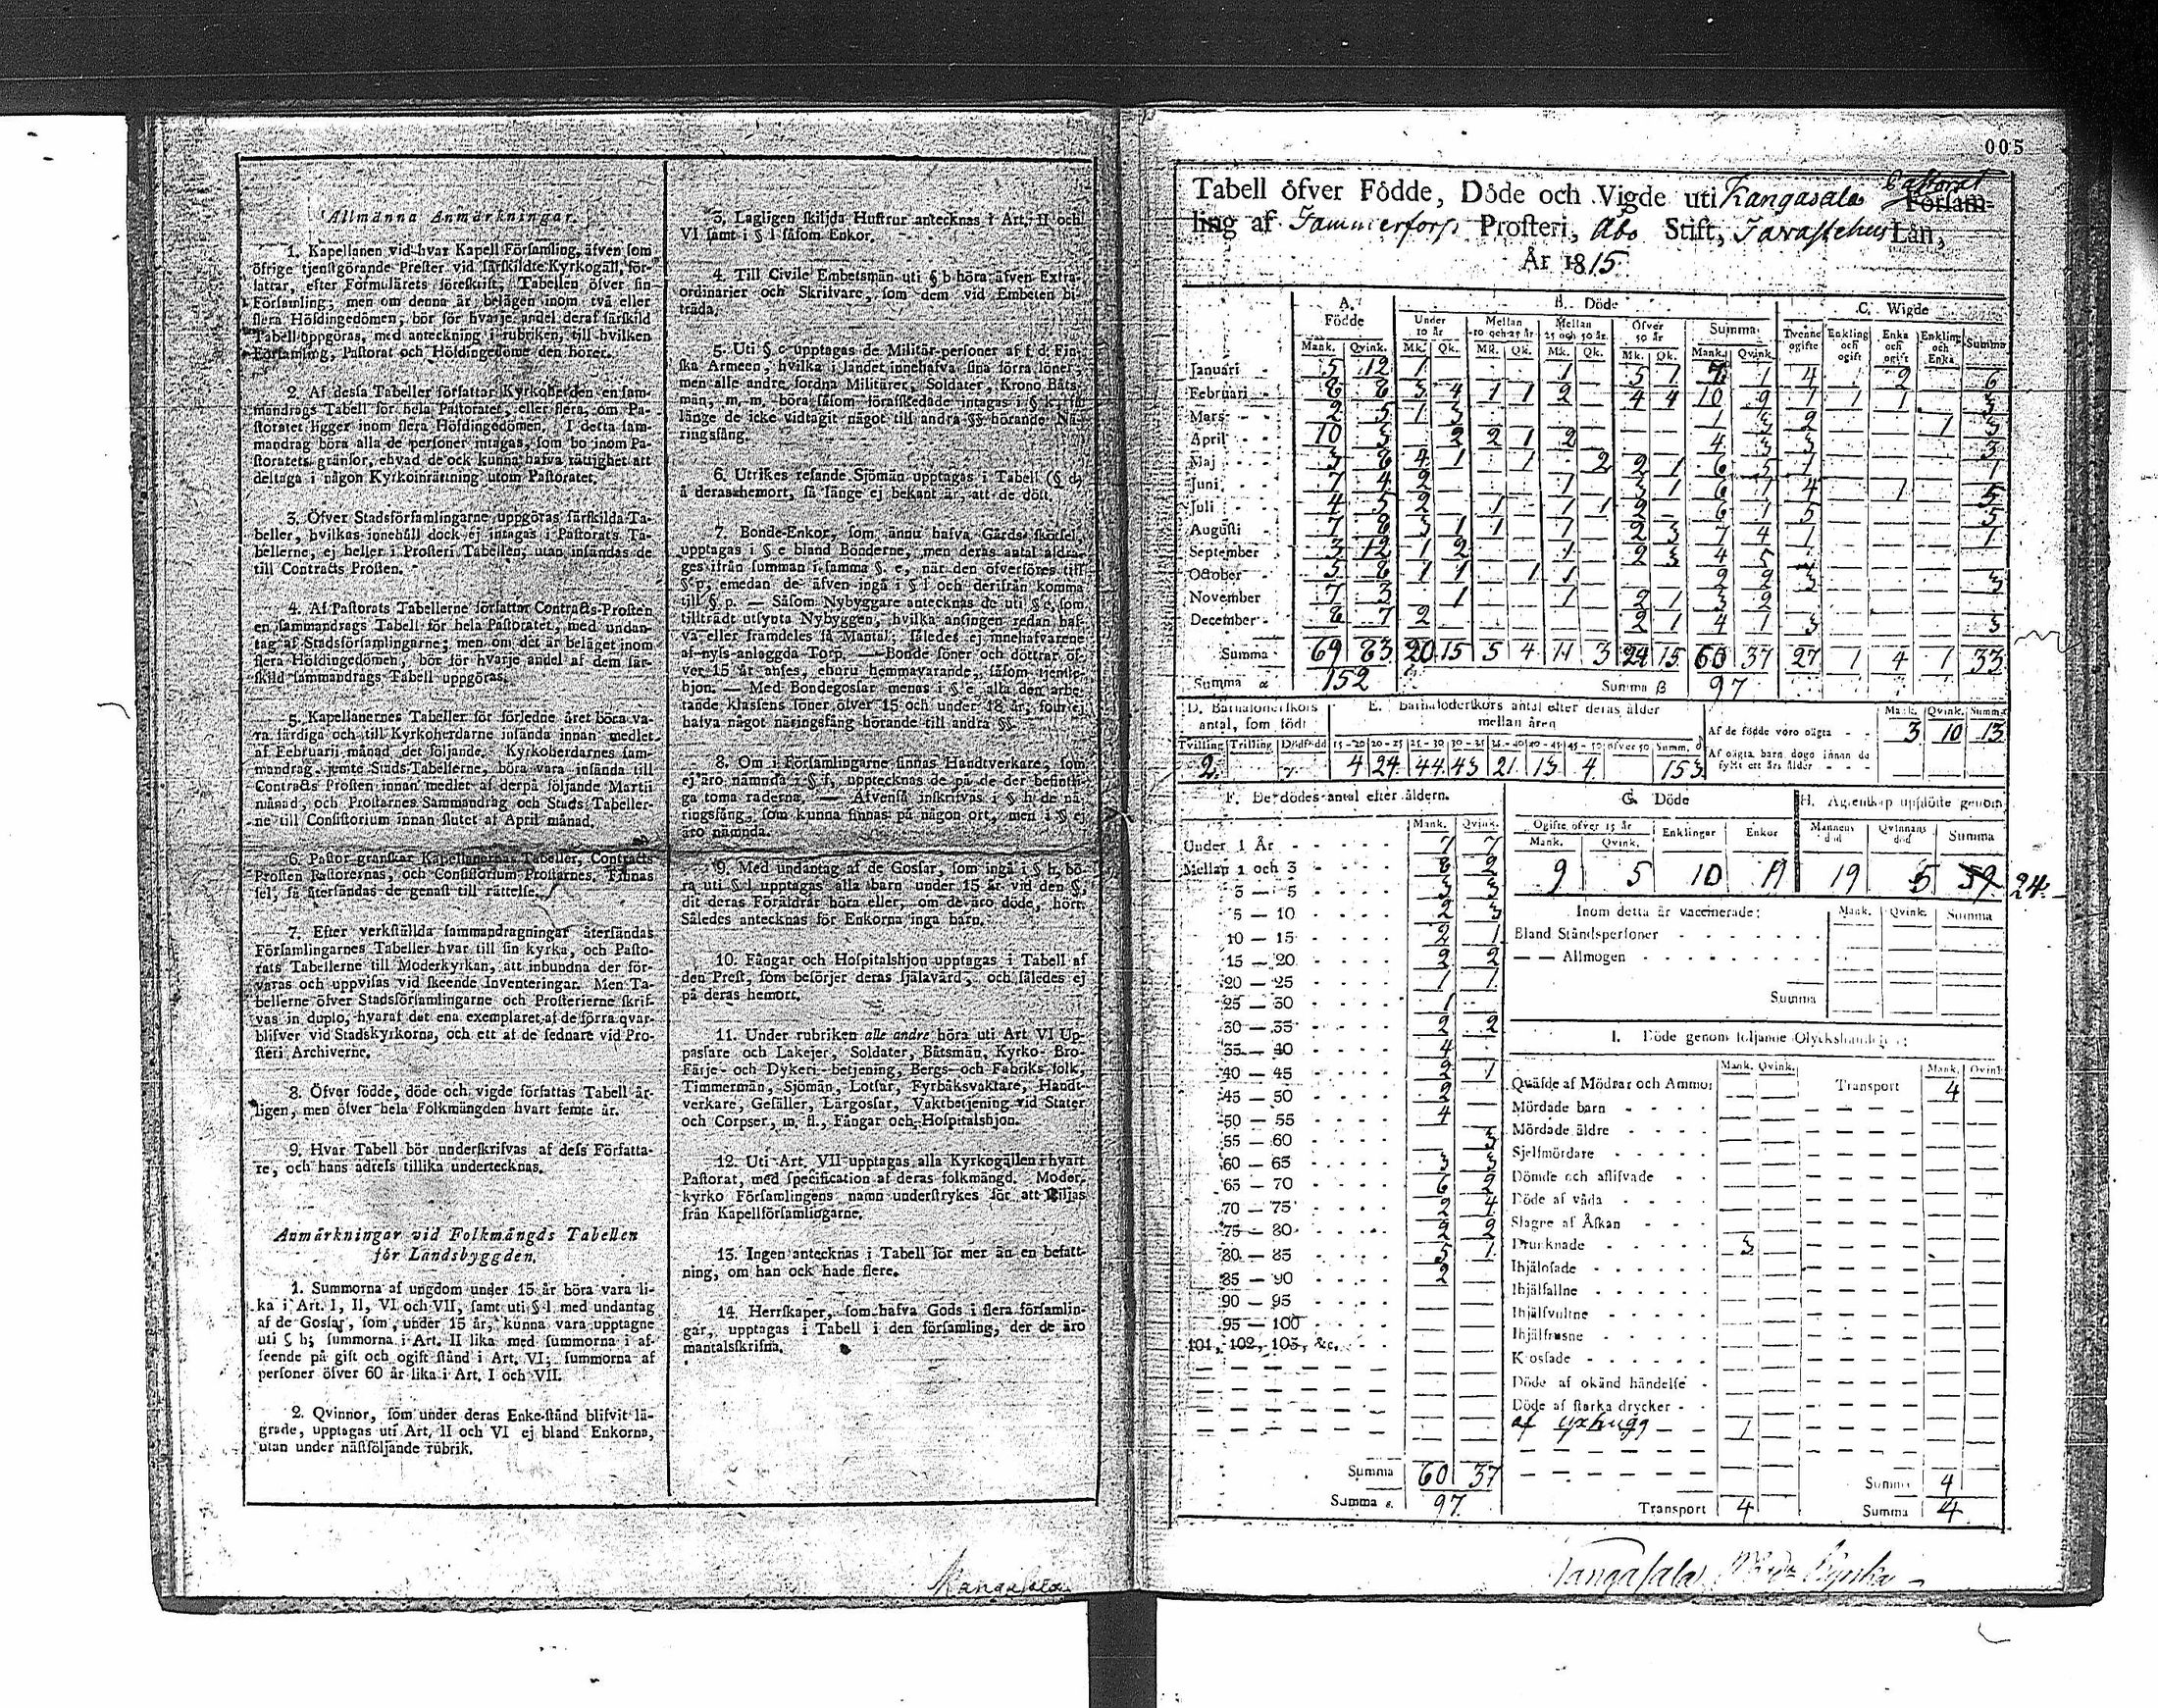 Allmänna Anmärkningar.
1. Kapellanen vid hvar Kapell Församling, äfven som
öfrige tjenstgörande Prester vid särskildte Kyrkogäll, för-
fattar, efter Formulärets föreskrift, Tabellen öfver sin
Församling; men om denna är belägen inom två eller
flera Höfdingedömen, bör för hvarje andel deraf särskild
Tabell uppgöras, med anteckning i rubriken, till hvilken
Församling, Pastorat och Höfdingedöme den hörer.
2. Af dessa Tabeller författar Kyrkoherden en sam-
mandrags Tabell för hela Pastoratet, eller flera, om Pa-
storatet ligger inom flera Höfdingedömen. I detta sam-
mandrag böra alla de personer intagas, som bo inom Pa-
storatets gränsor, ehvad de ock kunna hafva rättighet att
deltaga i någon Kyrkoinrättning utom Pastoratet.
3. Öfver Stadsförsamlingarne uppgöras särskilda Ta-
beller, hvilkas innehåll dock ej intagas i Pastorats Ta-
bellerne, ej heller i Prosteri Tabellen, utan insändas de
till Contracts Prosten.
4. Af Pastorats Tabellerne författar Contracts-Prosten
en sammandrags Tabell för hela Pastoratet, med undan-
tag af Stadsförsamlingarne; men om det är beläget inom
flera Höfdingedömen, bör för hvarje andel af dem sär-
skild sammandrags Tabell uppgöras.
5. Kapellanernes Tabeller för förledne året böra va-
ra färdiga och till Kyrkoherdarne insända innan medlet
af Februarii månad det följande. Kyrkoherdarnes sam-
mandrag, jemte Stads-Tabellerne, böra vara insända till
Contracts Prosten innan medlet af derpå följande Martii
månad, och Prostarnes Sammandrag och Stads Tabeller-
ne till Consistorium innan slutet af April månad.
6. Pastor granskar Kapellanernas Tabeller, Contracts
Prosten Pastorernas, och Consistorium Prostarnes. Finnas
fel, så återsändas de genast till rättelse.
7. Efter verkställda sammandragningar återsändas
Församlingarnes Tabeller hvar till sin kyrka, och Pasto-
rats Tabellerne till Moderkyrkan, att inbundna der för-
varas och uppvisas vid skeende Inventeringar. Men Ta-
bellerne öfver Stadsförsamlingarne och Prosterierne skrif-
vas in duplo, hvaraf det ena exemplaret af de förra qvar-
blifver vid Stadskyrkorna, och ett af de sednare vid Pro-
steri Archiverne.
8. Öfver födde, döde och vigde författas Tabell år-
ligen, men öfver hela Folkmängden hvart femte år.
9. Hvar Tabell bör underskrifvas af dess Författa-
re, och hans adress tillika undertecknas.
Anmärkningar vid Folkmängds Tabellen
för Landsbyggden.
1. Summorna af ungdom under 15 år böra vara li-
ka i Art. I, II, VI och VII, samt uti § l med undantag
af de Gossar, som, under 15 år, kunna vara upptagne
uti § h; summorna i Art. II lika med summorna i af-
seende på gift och ogift stånd i Art. VI; summorna af
personer öfver 60 år lika i Art. I och VII.
2. Qvinnor, som under deras Enke-stånd blifvit lä-
grade, upptagas uti Art. II och VI ej bland Enkorna,
utan under nästföljande rubrik.
3. Lagligen skiljda Hustrur antecknas i Art. II och
VI samt i § l såsom Enkor.
4. Till Civile Embetsmän uti § b höra äfven Extra
ordinarier och Skrifvare, som dem vid Embeten bi-
träda.
5. Uti § c upptagas de Militär-personer af f. d. Fin-
ska Armeen, hvilka i landet innehafva sina förra löner;
men alle andre fordna Militärer, Soldater, Krono Båts-
män, m. m. böra såsom förafskedade intagas i § k, så
länge de icke vidtagit något till andra §§ hörande Nä-
ringsfång.
6. Utrikes resande Sjömän upptagas i Tabell (§ d)
å deras hemort, så länge ej bekant är, att de dött.
7. Bonde-Enkor, som ännu hafva Gårds skötsel,
upptagas i § e bland Bönderne, men deras antal afdra-
ges ifrån summan i samma § e, när den öfverföres till
§ p, emedan de äfven ingå i § l och derifrån komma
till § p. — Såsom Nybyggare antecknas de uti § e, som
tillträdt utsynta Nybyggen, hvilka antingen redan haf-
va eller framdeles få Mantal; således ej innehafvarene
af nyss anlaggda Torp. — Bonde söner och döttrar öf-
ver 15 år anses, ehuru hemmavarande, såsom tjenste-
hjon. — Med Bondegossar menas i § e alla den arbe-
tande klassens söner öfver 15 och under 18 år, som ej
hafva något näringsfång hörande till andra §§.
8. Om i Församlingarne finnas Handtverkare, som
ej äro nämnda i § f, upptecknas de på de der befintli-
ga toma raderna. — Äfvenså inskrifvas i § h de nä-
ringsfång, som kunna finnas på någon ort, men i § ej
äro nämnda.
9. Med undantag af de Gossar, som ingå i § h, bö-
ra uti § l upptagas alla barn under 15 år vid den §,
dit deras Föräldrar höra eller, om de äro döde, hört.
Således antecknas för Enkorna inga barn.
10. Fångar och Hospitalshjon upptagas i Tabell af
den Prest, som besörjer deras själavård, och således ej
på deras hemort.
11. Under rubriken alle andre höra uti Art. VI Up-
passare och Lakejer, Soldater, Båtsmän, Kyrko- Bro-
Färje- och Dykeri- betjening, Bergs- och Fabriks folk,
Timmermän, Sjömän, Lotsar, Fyrbåksvaktare, Handt-
verkare, Gesäller, Lärgossar, Vaktbetjening vid Stater
och Corpser, m. fl., Fångar och Hospitalshjon.
12. Uti Art. VII upptagas alla Kyrkogällen i hvart
Pastorat, med specification af deras folkmängd. Moder-
kyrko Församlingens namn understrykes för att skiljas
från Kapellförsamlingarne.
13. Ingen antecknas i Tabell för mer än en befatt-
ning, om han ock hade flere.
14. Herrskaper, som hafva Gods i flera församlin-
gar, upptagas i Tabell i den församling, der de äro
mantalsskrifna.
Kangasala
005
Tabell öfver Födde, Döde och Vigde uti Kangasala Pastorat Försam-
ling af Tammerfors Prosteri, Åbo Stift, Tavastehus Län,
År 1815.
A. Födde B. Döde C. Wigde
Under 10 år Mellan 10 och 25 år Mellan 25 och 50 år. Öfver 50 år Summa Tvenne ogifte Enkling och ogift Enka och ogift Enkling och Enka Summa
Mank. Qvink. Mk. Qk. Mk. Qk. Mk. Qk. Mk. Qk. Mank. Qvink.
Januari 5 12 1 1 5 1 7 1 4 2 6
Februari 8 8 3 4 1 1 2 4 4 10 9 1 1 1 3
Mars 2 5 1 3 1 3 2 1 3
April 10 5 2 2 1 2 4 3 3 3
Maj 3 8 4 1 1 2 2 1 6 5 1 1
Juni 7 4 2 1 3 1 6 1 4 1 5
Juli 4 5 2 1 1 1 2 6 1 5 5
Augusti 7 8 3 1 1 1 2 3 7 4 1 1
September 3 12 1 2 1 2 3 4 5
October 5 8 1 1 1 1 2 2 3 3
November 7 3 1 1 2 1 3 2
December 8 7 2 2 1 4 1 3 3
Summa 69 83 20 15 5 4 11 3 24 15 60 37 27 1 4 1 33
Summa α 152 Summa β 97
D. Barnaföderskors antal, som födt
Tvilling Trilling Dödfödd
2
E. Barnaföderskors antal efter deras ålder
mellan åren
15-20 20-25 25-30 30-35 35-40 40-45 45-50 öfver 50 Summ. d
4 24 44 43 21 13 4 153
Mank. Qvink. Summa
Af de födde voro oägta 3 10 13
Af oägta barn dogo innan de
fyllt ett års ålder
F. De dödes antal efter åldern.
Mank. Qvink.
Under 1 År 7 7
Mellan 1 och 3 8 2
3 — 5 3 3
5 — 10 2 3
10 — 15 2 1
15 — 20 2 2
20 — 25 1 1
25 — 30 1
30 — 35 2 2
35 — 40 4
40 — 45 2 1
45 — 50 2
50 — 55 4
55 — 60 3
60 — 65 3 3
65 — 70 6 2
70 — 75 2 4
75 — 80 2 2
80 — 85 5 1
85 — 90 2
90 — 95
95 — 100
101, 102, 103, &c.
Summa 60 37
Summa ε. 97.
G. Döde
Ogifte öfver 15 år Enklingar Enkor
Mank. Qvink.
9 5 10 11
H. Ägtenskap upplöste genom
Mannens död Qvinnans död Summa
19 5 39 24.
Inom detta år vaccinerade: Mank. Qvink. Summa
Bland Ståndspersoner
— — Allmogen
Summa
I. Döde genom följande Olyckshändelser:
Mank. Qvink. Mank. Qvink.
Quäfde af Mödrar och Ammor Transport 4
Mördade barn
Mördade äldre
Sjelfmördare
Dömde och aflifvade
Döde af våda
Slagne af Åskan
Drunknade 3
Ihjälosade
Ihjälfallne
Ihjälsvultne
Ihjälfrusne
Kossade
Döde af okänd händelse
Döde af starka drycker
af yxhugg 1
Summa 4
Transport 4 Summa 4
Kangasala Moder Kyrka